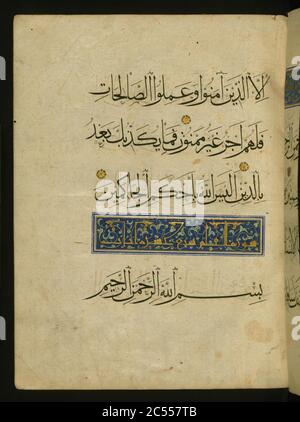 إلا الذين آمنوا وعملوا الصالحات
فلهم أجر غير ممنون فما يكذبك بعد
بالدين أليس الله بأحكم الحاكمين
بسم الله الرحمن الرحيم
alamy
Image ID: 2C557TB
www.alamy.com